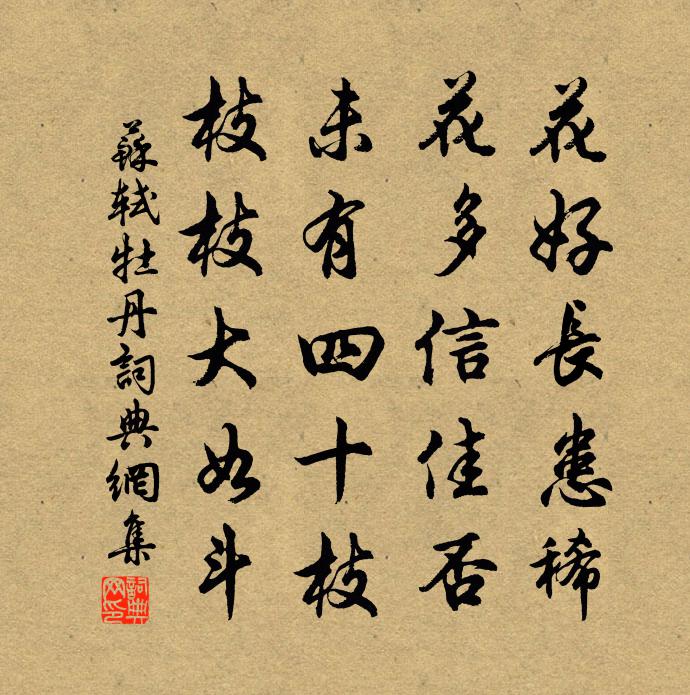 花好長患稀
花多信佳否
未有四十枝
枝枝大如斗
蘇軾牡丹詞典網集
詞典网印